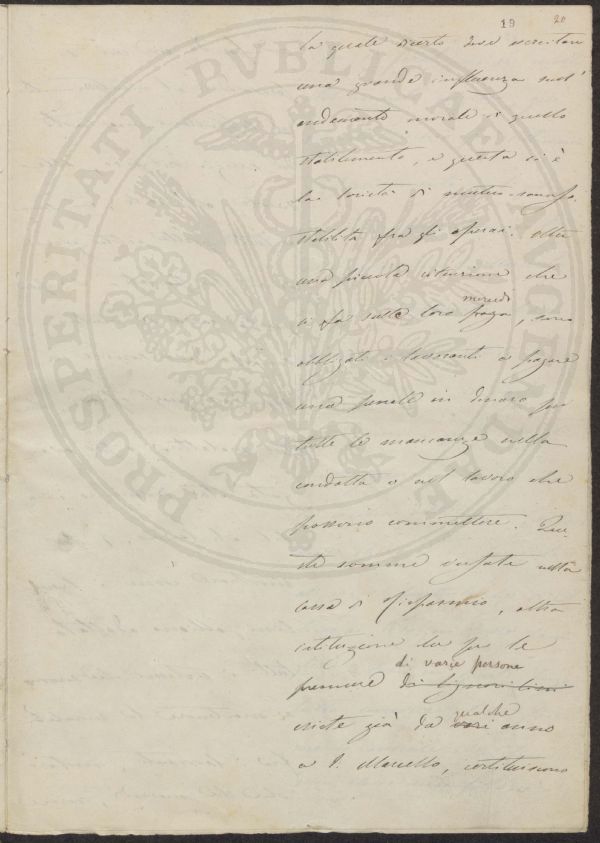 19 20
PROSPERITATI PVBLICAE AVGENDAE
la quale deve esercitare
una grande influenza nell'
andamento morale di quello
stabilimento, e questa si è
la società di mutuo
stabilita fra gli operai. Oltre
una piccola che
si fa sulle loro paga, sono
mercedi
obbligati i lavoranti a pagare
una penale in denaro per
tutte le mancanze nella
condotta o nel lavoro che
possono commettere. Que-
ste somme nella
cassa di risparmio, altra
istituzione che per le
di varie persone
premure di Signori
esiste già da vari anno
qualche
a S. Marcello, costituiscono